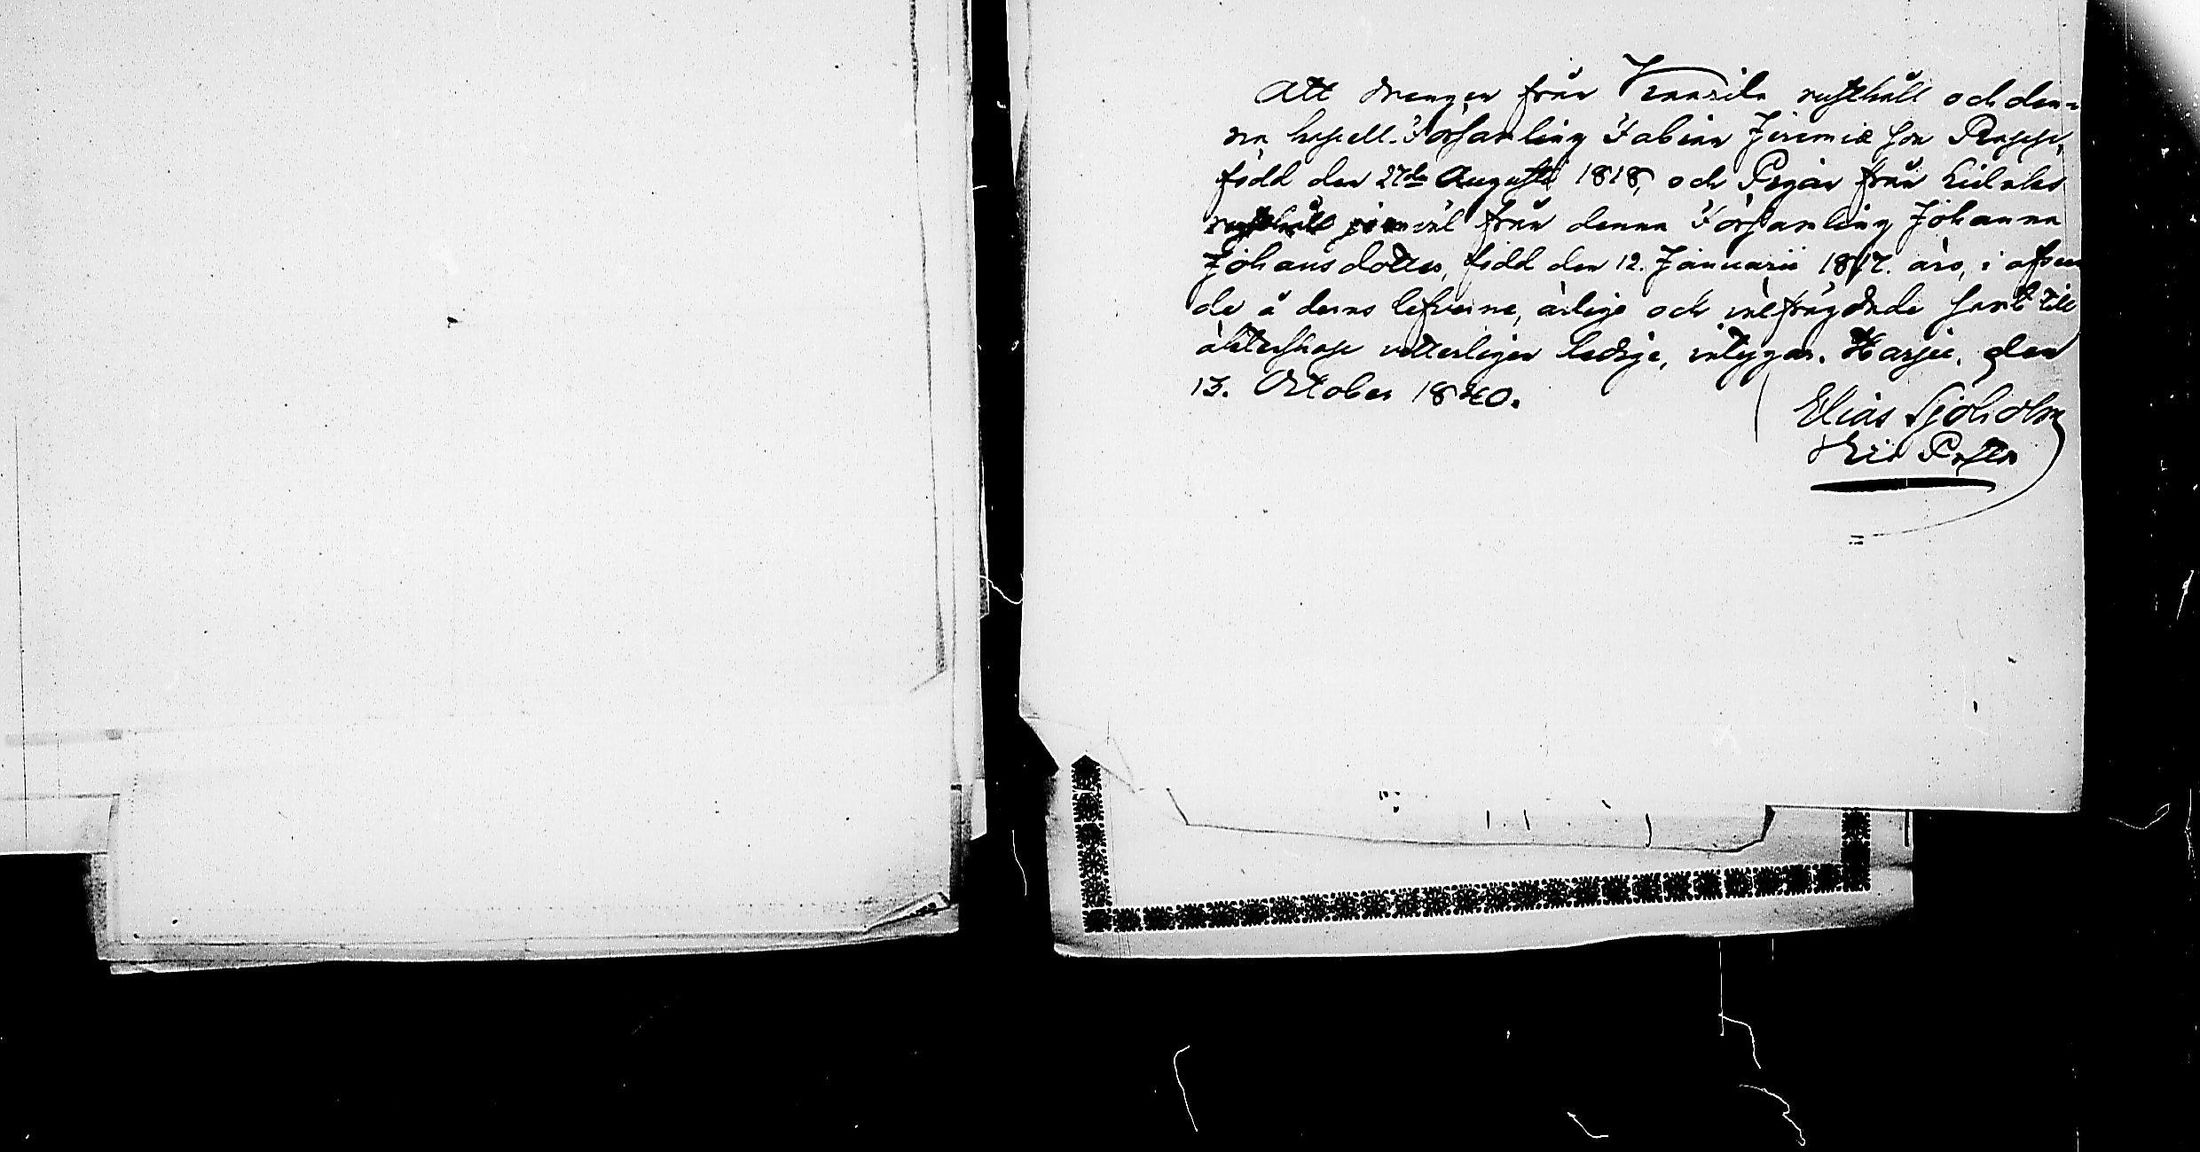 Att drengen från rusthåll och den=
na kapell-Församling Fabian Jeremiæ son
född den 27de Augusti 1818, och Pigan från
rusthåll jemväl från denna Församling Johanna
Johansdotter, född den 12. Januarii 1817. äro, i afseen
de å deras lefverne, ärlige och välfrägdade samt till
äktenskap vetterligen ledige, intygar. Harju, den
13. October 1840.
Elias Sjöholm
Vice Pastor